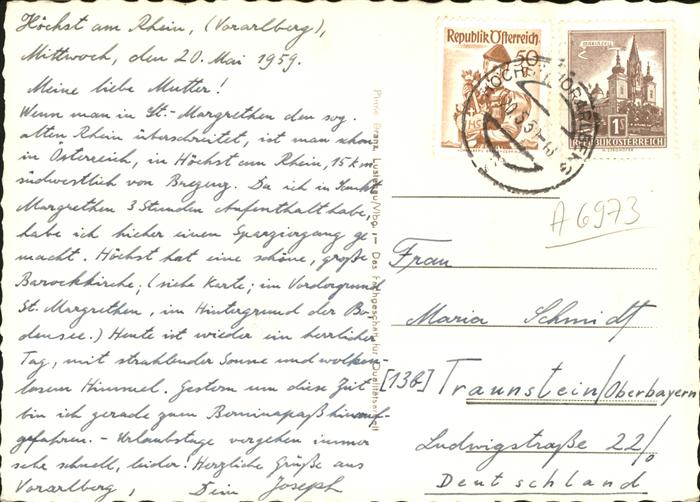 Höchst am Rhein, (Vorarlberg),
Mittwoch, den 20. Mai 1959.
Meine liebe Mutter!
Wenn man in St.-Margrethen den sog.
alten Rhein überschreitet, ist man schon
in Österreich, in Höchst am Rhein, 15 km
südwestlich von Bregenz. Da ich in Sankt
Margrethen 3 Stunden Aufenthalt habe,
habe ich hieher einen Spaziergang ge
macht. Höchst hat eine schöne, große
Barockkirche; (siehe Karte; im Vordergrund
St. Margrethen, im Hintergrund der Bo
densee.) Heute ist wieder ein herrlicher
Tag, mit strahlender Sonne und wolken
losem Himmel. Gestern um diese Zeit
bin ich gerade zum Berninapaß hinauf-
gefahren. - Urlaubstage vergehen immer
sehr schnell, leider! Herzliche Grüße aus
Vorarlberg, Dein Joseph
Republik Österreich
50
1 S
REPUBLIK ÖSTERREICH
A 6973
Frau
Maria Schmidt
[13b] Traunstein/Oberbayern
Ludwigstraße 22/0
Deutschland